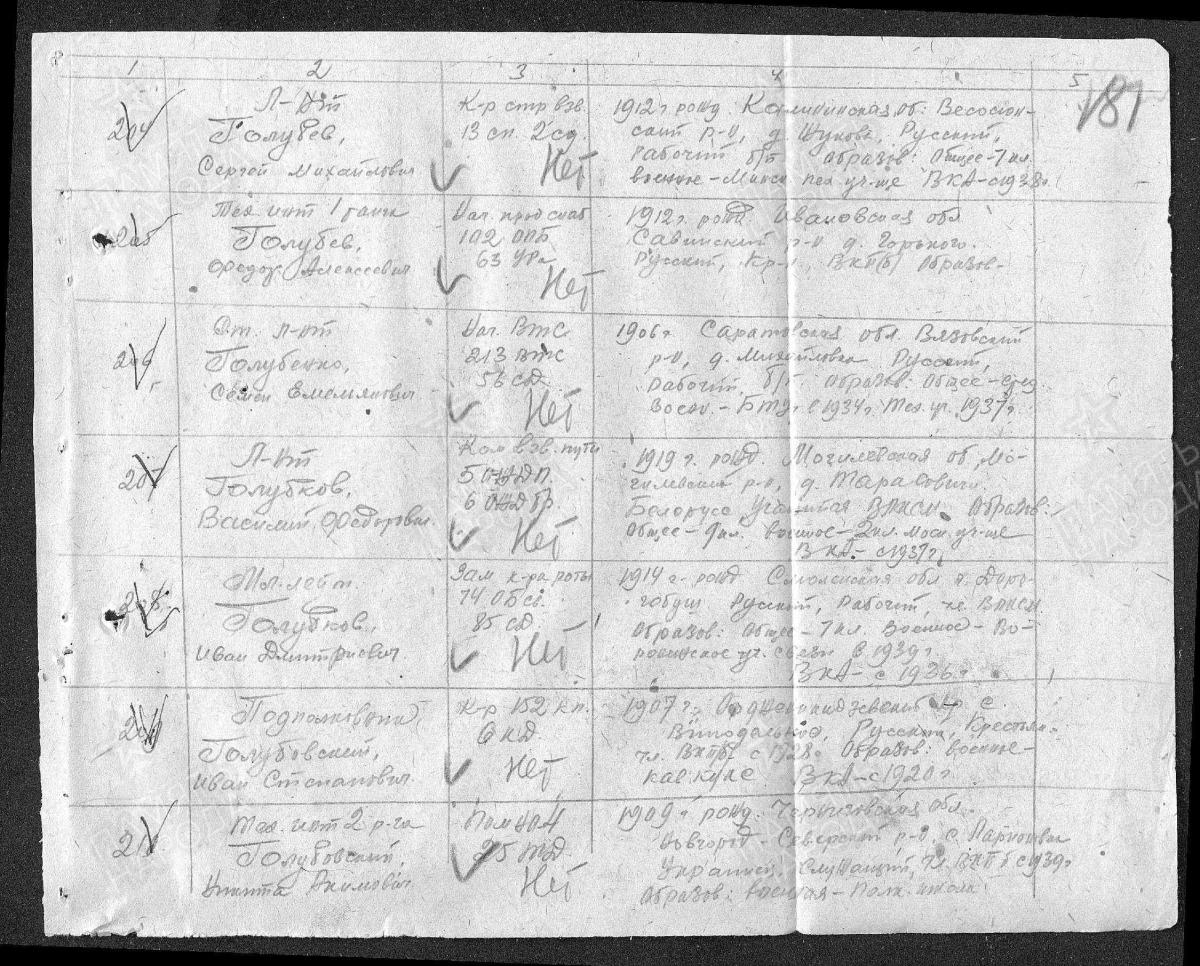 1 2 3 4 5
181
204
Л-нт
Голубев,
Сергей Михайлович
К-р стр взв.
13 сп. 2 сд.
Нет
1912 г. рожд. Калининская об:
ский р-н, д. Жуково, Русский,
Рабочий б/п Образов: Общее-7 кл.
военное - Минск пех. уч-ще ВКА-с 1938г.
205
Тех инт 1 ранга
Голубев,
Федор Алексеевич
Нач. прод снаб
102 ОПБ
63 УРа
Нет
1912 г. рожд Ивановская обл
Савинский р-н д. Горького.
Русский, Кр-н, ВКП(б) Образов-
206
Ст. л-нт
Голубенко,
Семен Емельянович
Нач. ВТС
213 ВТС
56 сд
Нет
1906 г Саратовская обл. Вязовский
р-н, д. Михайловка Русский,
Рабочий, б/п. Образов: Общее-сред.
Воен. - БТУ. с 1934 г. 1937 г.
207
Л-нт
Голубков,
Василий Федорович.
Ком взв. пути
5 ОЖДП.
6 ОЖДБр.
Нет
1919 г. рожд. Могилевская об, Мо-
гилевский р-н, д. Тарасовичи.
Белорус Учащийся ВЛКСМ Образов:
Общее-9 кл. военное - 2 кл. моск. уч-ще
ВКА - с 1937 г.
208
Мл. лейт.
Голубков,
Иван Дмитриевич
Зам к-ра роты
74 ОБсв.
85 сд.
Нет
1914 г. рожд Смоленская обл г. Доро-
гобуш Русский Рабочий, чл. ВЛКСМ
Образов: Общее - 7 кл. Военное - Во-
ронежское уч. связи в 1939 г.
ВКА - с 1936 г.
209
Подполковник
Голубовский,
Иван Степанович
К-р 152 кп.
6 кд
Нет
1907 г. Орджоникидзевский кр с.
Винодельное, Русский, Крестьян.
чл. ВКПб с 1928г. Образов: военное-
кав КУКС ВКА - с 1920 г.
210
Тех. инт 2 р-га
Голубовский,
Никита Акимович
Пом НО4
25 тд.
Нет
1909 г рожд. Черниговская обл.
Новгород-Северский р-н. с.
Украинец. Служащий, чл. ВКПб с 1939 г
Образов: Военная - Полк. школа